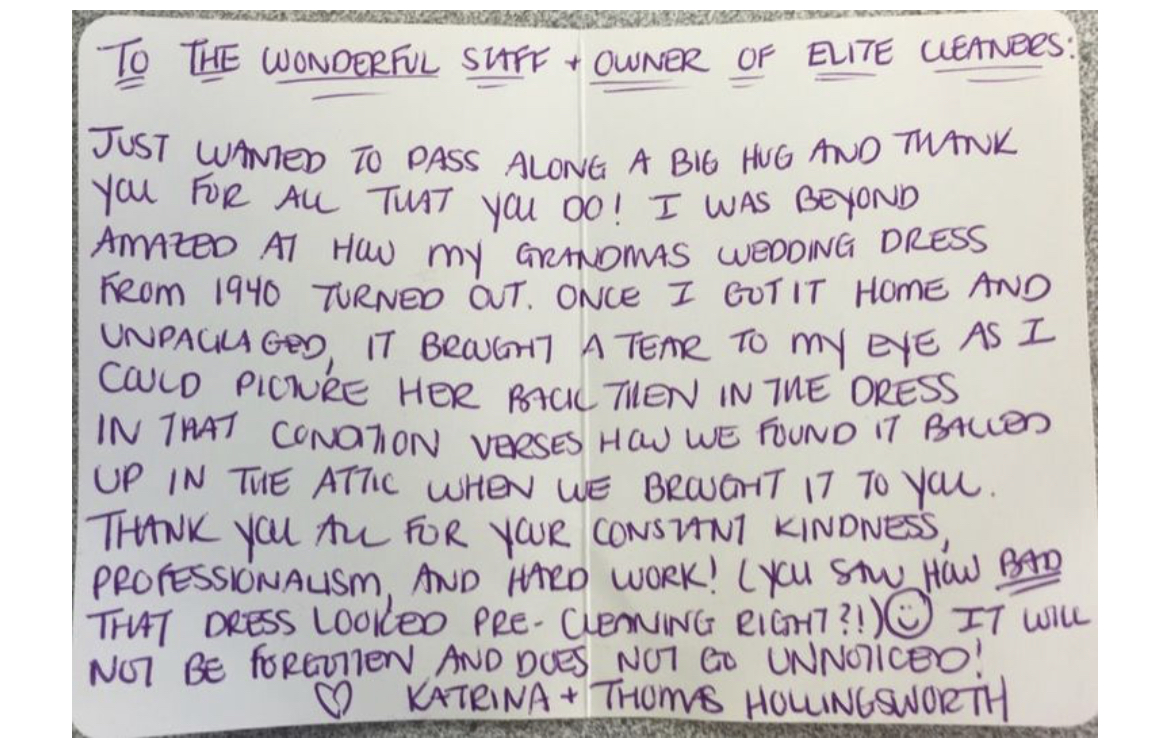 TO THE WONDERFUL STAFF + OWNER OF ELITE CLEANERS:
JUST WANTED TO PASS ALONG A BIG HUG AND THANK
YOU FOR ALL THAT YOU DO! I WAS BEYOND
AMAZED AT HOW MY GRANDMAS WEDDING DRESS
FROM 1940 TURNED OUT. ONCE I GOT IT HOME AND
UNPACKAGED, IT BROUGHT A TEAR TO MY EYE AS I
COULD PICTURE HER BACK THEN IN THE DRESS
IN THAT CONDITION VERSES HOW WE FOUND IT BALLED
UP IN THE ATTIC WHEN WE BROUGHT IT TO YOU.
THANK YOU ALL FOR YOUR CONSTANT KINDNESS,
PROFESSIONALISM, AND HARD WORK! (YOU SAW HOW BAD
THAT DRESS LOOKED PRE-CLEANING RIGHT?!) ☺ IT WILL
NOT BE FORGOTTEN AND DOES NOT GO UNNOTICED!
♡ KATRINA + THOMAS HOLLINGSWORTH